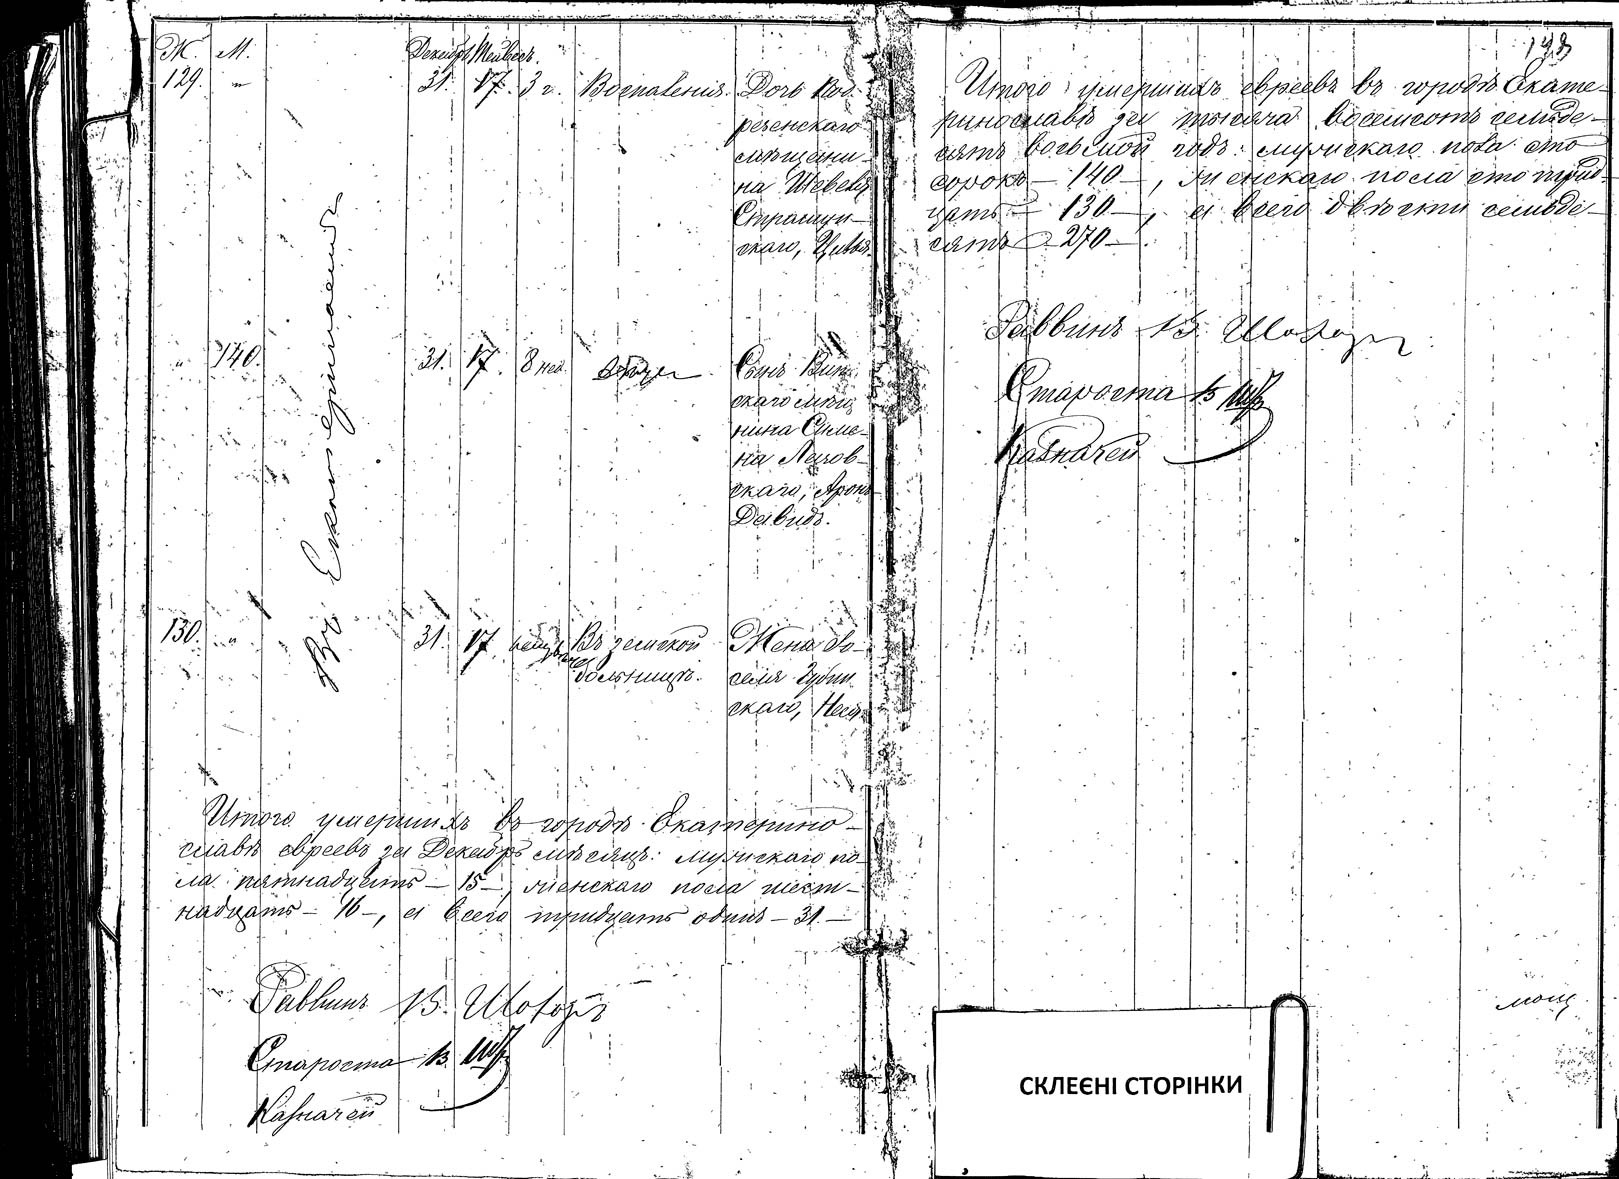 Ж. М. Декабрь Тейвесъ.
129. " 31. 17. 3 г. Воспаленія. Дочь
реченскаго
мѣщани-
на Шевеля
Страшун-
скаго, Цивья.
" 140. 31. 17. 8 нед. Сынъ
скаго мѣщ
нина Симо-
на Лесов-
скаго, Аронъ
Давидъ.
130. " 31. 17. Въ земской Жена
больницѣ.
скаго, Неся
Въ Екатеринославѣ
Итого умершихъ въ городѣ Екатерино-
славѣ евреевъ за Декабрь мѣсяцъ: мужскаго по-
ла пятнадцать - 15 -, женскаго пола шест-
надцать - 16 -, а всего тридцать одинъ - 31. -
Раввинъ В. Шо
Староста В.
Казначей
Итого умершихъ евреевъ въ городѣ Екате-
ринославѣ за тысяча восемсотъ семьде-
сятъ восьмой годъ: мужскаго пола сто
сорокъ - 140 -, женскаго пола сто трид-
цать - 130 -, а всего двѣсти семьде-
сятъ - 270 - .
Раввинъ В. Шо
Староста В.
Казначей
СКЛЕЄНІ СТОРІНКИ